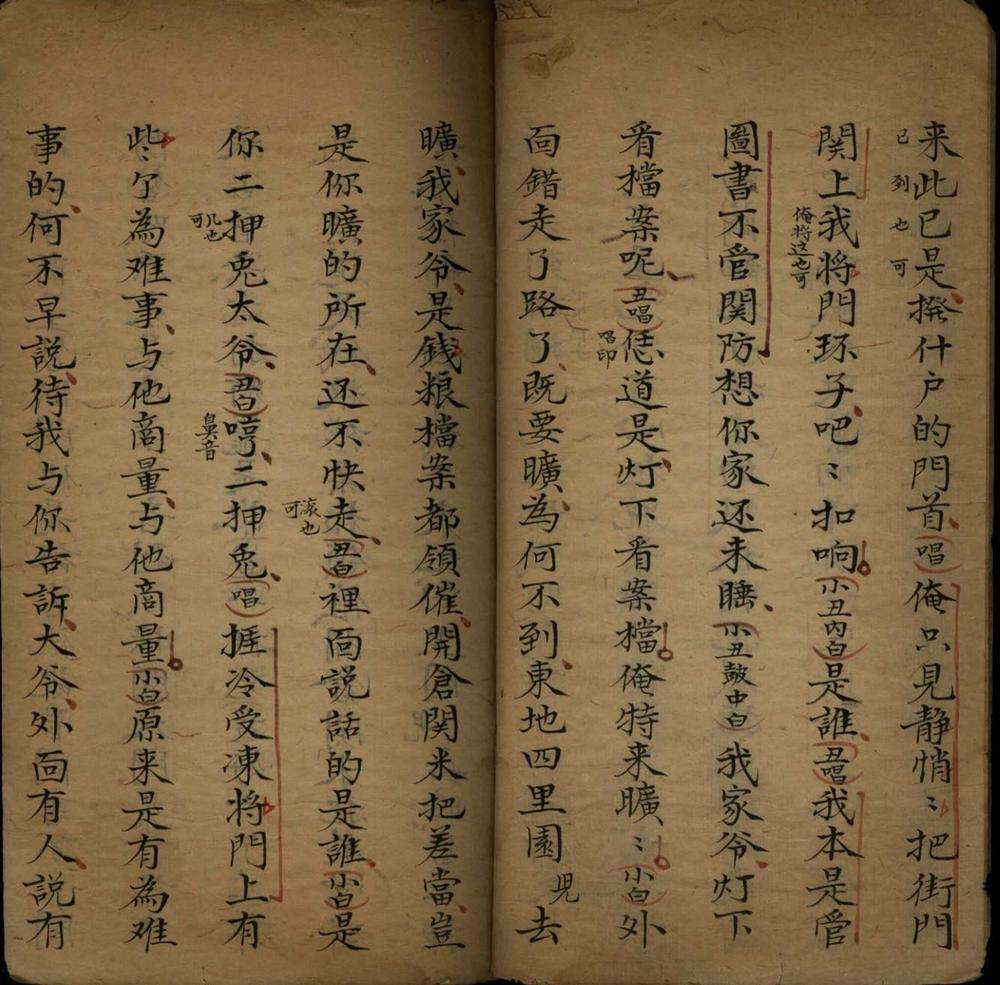 来此已是撥什户的門首唱俺只見静悄〻把街門
已到也可
関上我将門环子吧〻扣响小丑内白是誰丑唱我本是管
俺将这也可
圖書不管関防想你家还未睡小丑鼓中白我家爷灯下
看檔案呢丑唱恁道是灯下看案檔俺特来曠〻小白外
唱印
面錯走了路了既要曠為何不到東地四里園児去
曠我家爷是錢粮檔案都領催開倉関米把差當豈
是你曠的所在还不快走丑白裡面説話的是誰小白是
滚也可
你二押兎太爷丑白哼二押兎唱捱冷受凍将門上有
儿也可
鼻音
些〻亇為难事与他商量与他商量小白原来是有為难
事的何不早説待我与你告訴大爷外面有人説有